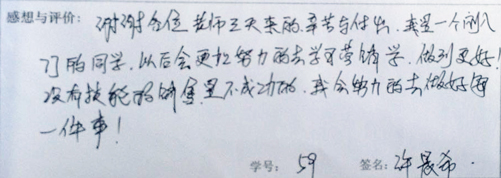 感想与评价：谢谢各位老师三天来的辛苦与付出，我是一个刚入
门的同学，以后会更加努力的去学习营销学，做到更好！
没有技能的销售是不成功的，我会努力的去做好每
一件事！
学号：59 签名：许晨希.